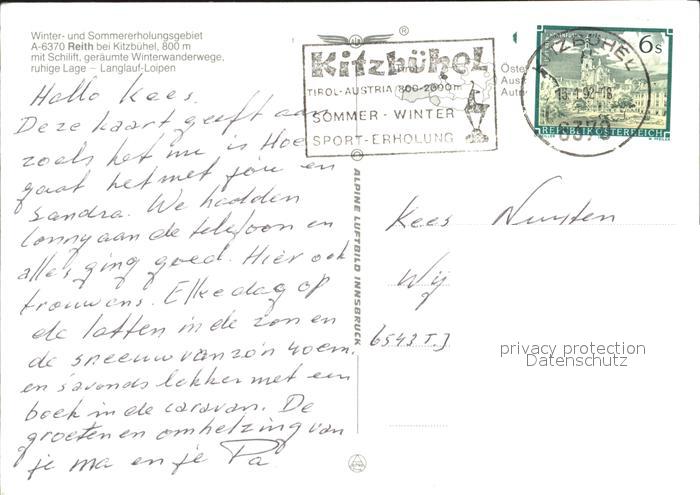 Winter- und Sommererholungsgebiet
A-6370 Reith bei Kitzbühel, 800 m
mit Schilift, geräumte Winterwanderwege,
ruhige Lage – Langlauf-Loipen
Hallo Kees.
Deze kaart geeft aan
zoals het nu is Hoe
gaat het met jou en
Sandra. We hadden
Conny aan de telefoon en
alles ging goed. Hier ook
trouwens. Elke dag op
de latten in de zon en
de sneeuw van zo'n 40 cm.
en s'avonds lekker met een
boek in de caravan. De
groeten en omhelzing van
je ma en je Pa
®
Kitzbühel
TIROL-AUSTRIA 800-2000m
SOMMER - WINTER
SPORT-ERHOLUNG
Öste
Aus
Aut
KITZBÜHEL
1 92-18
6370
6 s
REPUBLIK ÖSTERREICH
ALPINE LUFTBILD INNSBRUCK
Kees
Wij
6543 TJ
privacy protection
Datenschutz